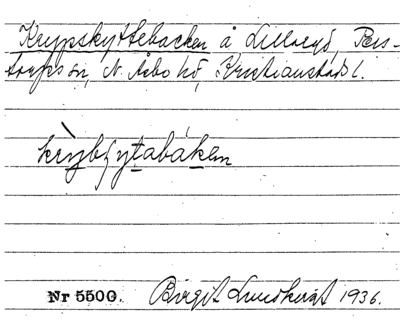 Krypskyttebacken å Lillaryd, Pers-
torps sn, N. Åsbo hd, Kristianstads l.
krỳbʃytabákęn
Nr 5500. Birgit Lundkvist 1936.